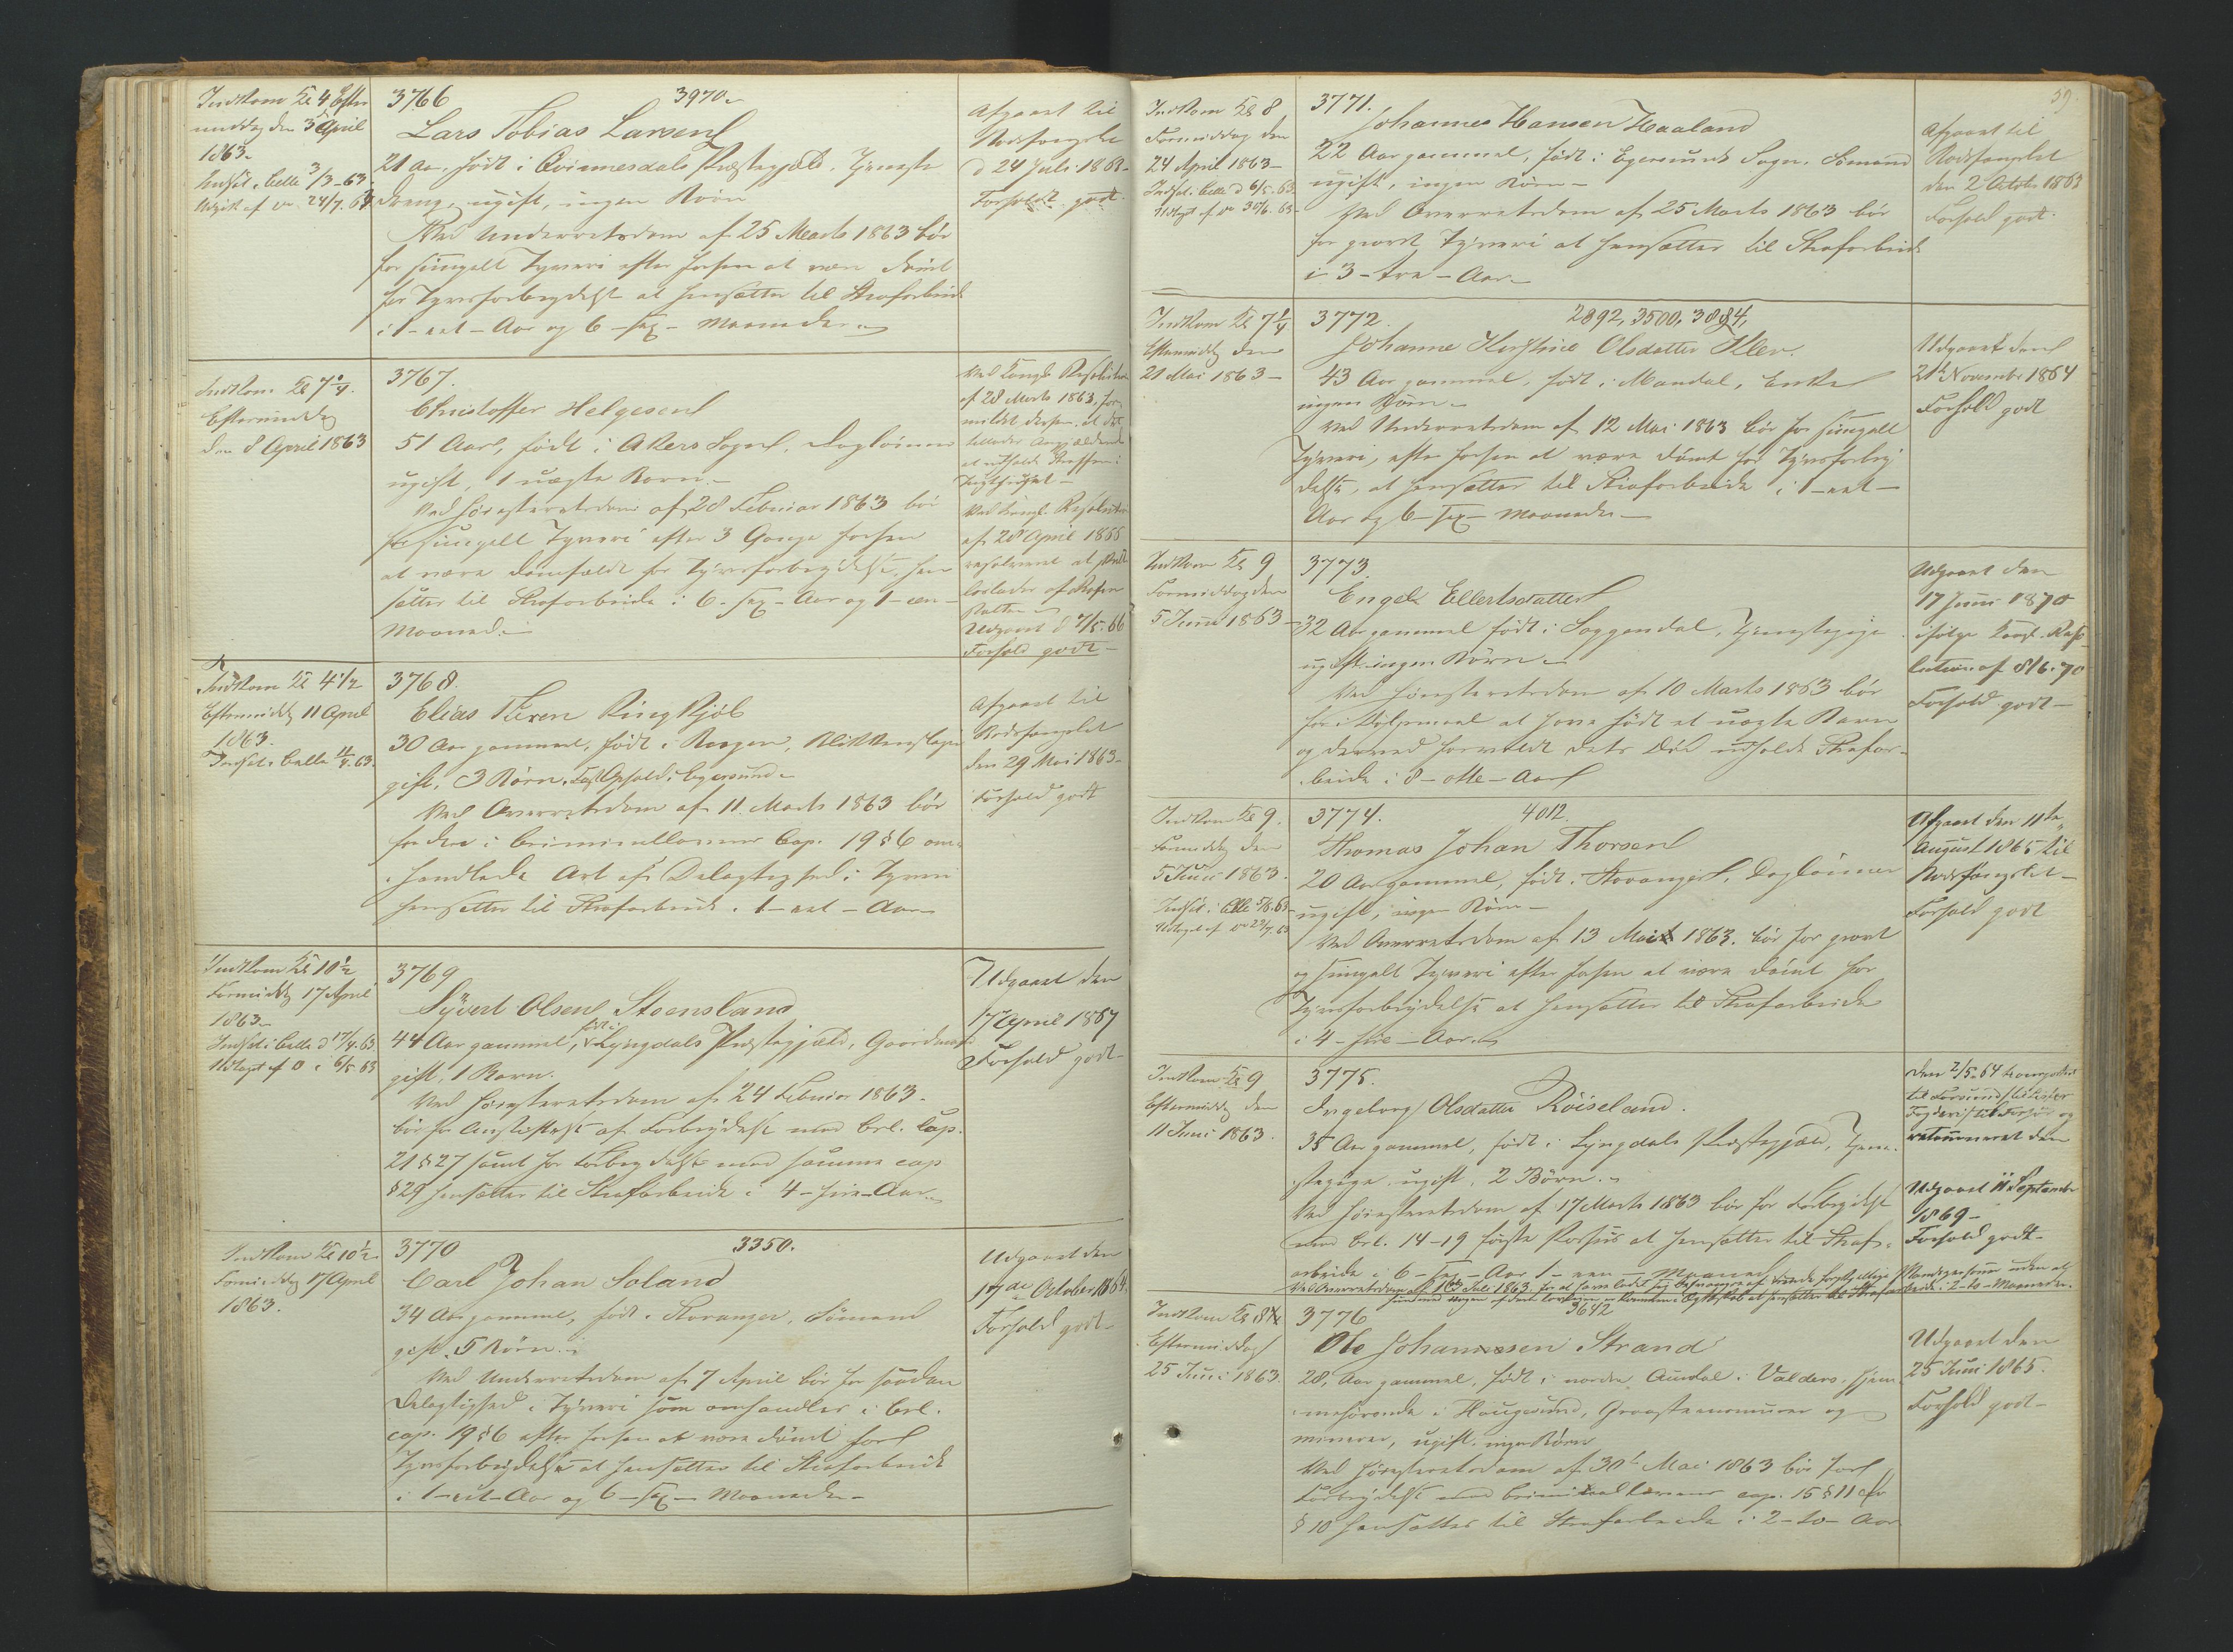 Indkom Kl 4 Efter
middag den 3 April
1863.
Indsat i Celle 3/3-63.
Udgik af do 24/7. 63
3766
3970.
Lars Tobias Larsen
21 Aar, født i Qvinnesdals Præstegjæld, Tjeneste
dreng, ugift, ingen Børn
Ved Underretsdom af 25 Marts 1863 bør
for simpelt Tyveri efter forhen at være dømt
for Tyvsforbrydelse at hensættes til Strafarbeide
i 1 - eet - Aar og 6 - sex - Maaneder.
Afgaaet til
Bodsfængslet
d 24 Juli 1863.
Forhold godt.
Indkom Kl 7 1/4.
Eftermiddag
den 8 April 1863
3767.
Christoffer Helgesen
51 Aar, født i Akers Sogn, Dagløinner
ugift, 1 uægte Barn.
Ved Høiesteretsdom af 28 Februar 1863 bør
for simpelt Tyveri efter 3 Gange forhen
at være domfældt for Tyvsforbrydelse, hen
sættes til Strafarbeide i 6 - sex - Aar og 1 - een -
Maaned.
Ved Kongl. Resolution
af 28 Marts 1863, for
mildet derhen, at det
tillades
at udholde Straffen i
Tugthuset -
Ved Kongl. Resolution
af 28 April 1866
resolveret at
løslades af Straffen
Udgaaet d 7/5. 66
Forhold godt -
Indkom Kl 4 1/2
Eftermiddg 11 April
1863.
Indsat i Celle 11/4. 63.
3768.
Elias Rieven Ringkjøb
30 Aar gammel, født i Bergen, Blikkenslager
gift, 3 Børn, sidst Ophold i Egersund.
Ved Overretsdom af 11 Marts 1863 bør
for den i Criminalloven Cap. 19 § 6 om-
handlede Art af Delagtighed i Tyveri
hensættes til Strafarbeide i 1 - eet - Aar
Afgaaet til
Bodsfængslet
den 29 Mai 1863.
Forhold godt
Indkom Kl 10 1/2
Formiddg 17 April
1863.
Indsat i Celle d 17/4. 63
Udtaget af d i 6/5 63
3769
Syvert Olsen Steensland
44 Aar gammel, født i Lyngdals Præstegjæld, Gaardmand
gift, 1 Barn.
Ved Høiesteretsdom af 24 Februar 1863.
bør for Anstiftelse af Forbrydelse mod Crl. Cap.
21 § 27 samt for Forbrydelse mod samme cap
§ 29 hensættes til Strafarbeide i 4 - fire - Aar.
Udgaaet den
17 April 1867
Forhold godt -
Indkom Kl 10 1/2
Formiddag 17 April
1863.
3770
3350.
Carl Johan Soland
34 Aar gammel, født i Stavanger, Sømand
gift, 5 Børn.
Ved Underretsdom af 7 April bør for saadan
Delagtighed i Tyveri som omhandles i Crl.
cap. 19 § 6 efter forhen at være dømt for
Tyvsforbrydelse at hensættes til Strafarbeide
i 1 - eet - Aar og 6 - sex - Maaneder -
Udgaaet den
17de October 1864.
Forhold godt -
39.
Indkom Kl 8
Formiddag den
24 April 1863 -
Indsat i Celle d 6/5. 63.
Udtagt af do 30/6. 63 -
3771.
Johannes Hansen Haaland
22 Aar gammel, født i Egersunds Sogn, Sømand
ugift, ingen Børn -
Ved Overretsdom af 25 Marts 1863 bør
for grovt Tyveri at hensættes til Strafarbeide
i 3 - tre - Aar.
Afgaaet til
Bodsfængslet
den 2 Octobr 1863
Forhold godt.
Indkom Kl 7 1/4
Eftermiddg den
21 Mai 1863 -
3772.
2892, 3500, 3884,
Johanne Kirstine Olsdatter Klev.
43 Aar gammel, født i Mandal, Enke
ingen Børn -
Ved Underretsdom af 12 Mai 1863 bør for simpelt
Tyveri, efter forhen at være dømt for Tyvsforbry
delse, at hensættes til Strafarbeide i 1 - eet -
Aar og 6 - sex - Maaneder -
Udgaaet den
21de November 1864
Forhold godt
Indkom Kl 9
Formiddag den
5 Juni 1863 -
3773.
Engel Ellertsdatter
32 Aar gammel født i Soggendal, Tjenestepige
ugift ingen Børn -
Ved Høiesteretsdom af 10 Marts 1863 bør
for i Dølgsmaal at have født et uægte Barn
og derved forvoldt dets Død udholde Strafar-
beide i 8 - otte - Aar
Udgaaet den
17 Juni 1870
ifølge Kongl. Reso
lution af 8/6. 70
Forhold godt -
Indkom Kl 9.
Formiddg den
5 Juni 1863.
Indsat i Celle 5/6. 63 -
Udtaget af do 22/7. 63
3774.
4012.
Thomas Johan Thorsen
20 Aar gammel, født i Stavanger, Dagløinner
ugift, ingen Børn -
Ved Overretsdom af 13 Mai 1863. bør for grovt
og simpelt Tyveri efter forhen at være dømt for
Tyvsforbrydelse at hensættes til Strafarbeide
i 4 - fire - Aar.
Afgaaet den 11te
August 1865 til
Bodsfængslet -
Forhold godt
Indkom Kl 9
Eftermiddg den
11 Juni 1863.
3775.
Ingeborg Olsdatter Røiseland.
35 Aar gammel, født i Lyngdals Præstegjæld, Tjene-
stepige, ugift, 2 Børn.
Ved Høiesteretsdom af 17 Marts 1863 bør for Forbrydelse
mod Crl. 14 - 19 første Passus at hensættes til Straf-
arbeide i 6 - sex - Aar 1 - een - Maaned
Ved Overretsdom af 16 Juli 1863. for at have ladet sig besvangre af forskjellige Mandspersoner uden at
hensættes til Strafarbeide i 2 - to - Maaneder.
Den 2/5. 64 transporteret
til Farsund
Fogderi til Forhør og
retourneret den
Udgaaet 11 September
1869 -
Forhold godt -
Indkom Kl 8
Eftermiddag
25 Juni 1863.
3776
3642
Ole Johannesen Strand
28 Aar gammel, født i nordre Aurdal i Valders, hjem-
mehørende i Haugesund, Graasteensmurer og
minerer, ugift, ingen Børn
Ved Høiesteretsdom af 30te Mai 1863 bør for
Forbrydelse mod Criminalloven cap. 15 § 11 cfr
§ 10 hensættes til Strafarbeide i 2 - to - Aar
Udgaaet den
25 Juni 1865.
Forhold godt -